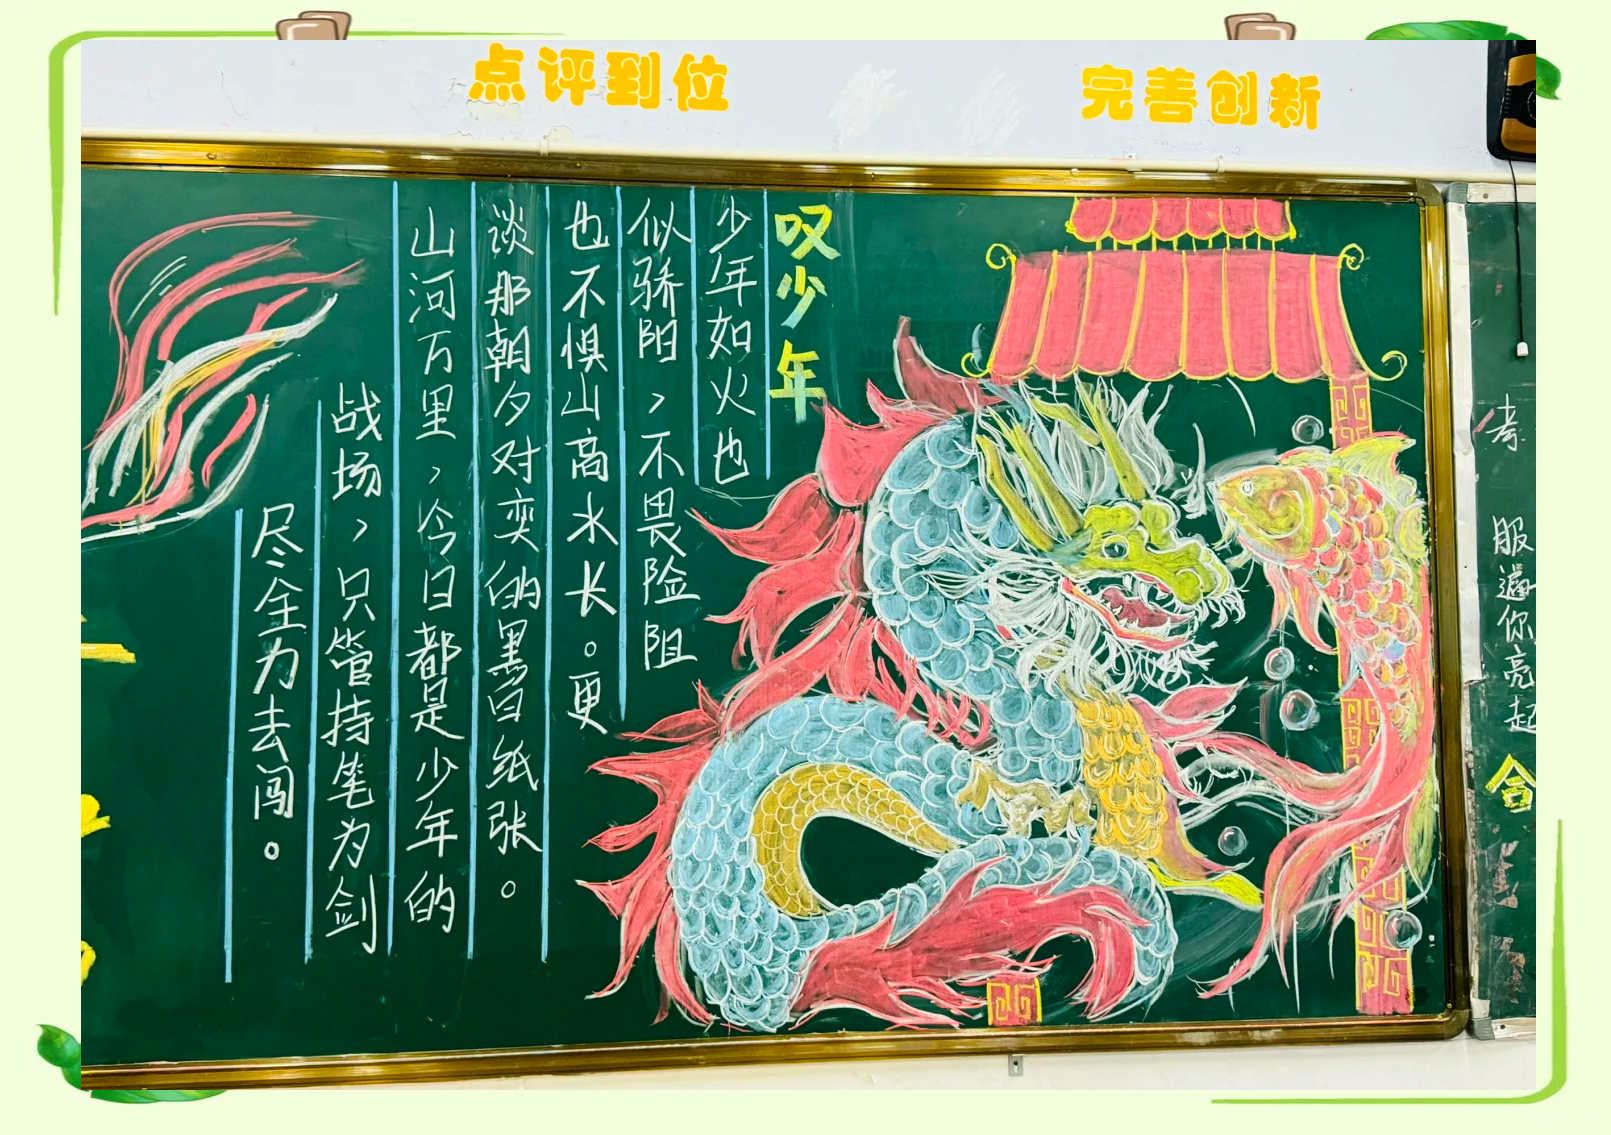 点评到位
完善创新
叹少年
少年如火也
似骄阳，不畏险阻
也不惧山高水长。更
谈那朝夕对奕的黑白纸张。
山河万里，今日都是少年的
战场，只管持笔为剑
尽全力去闯。
考
服
你亮起
合